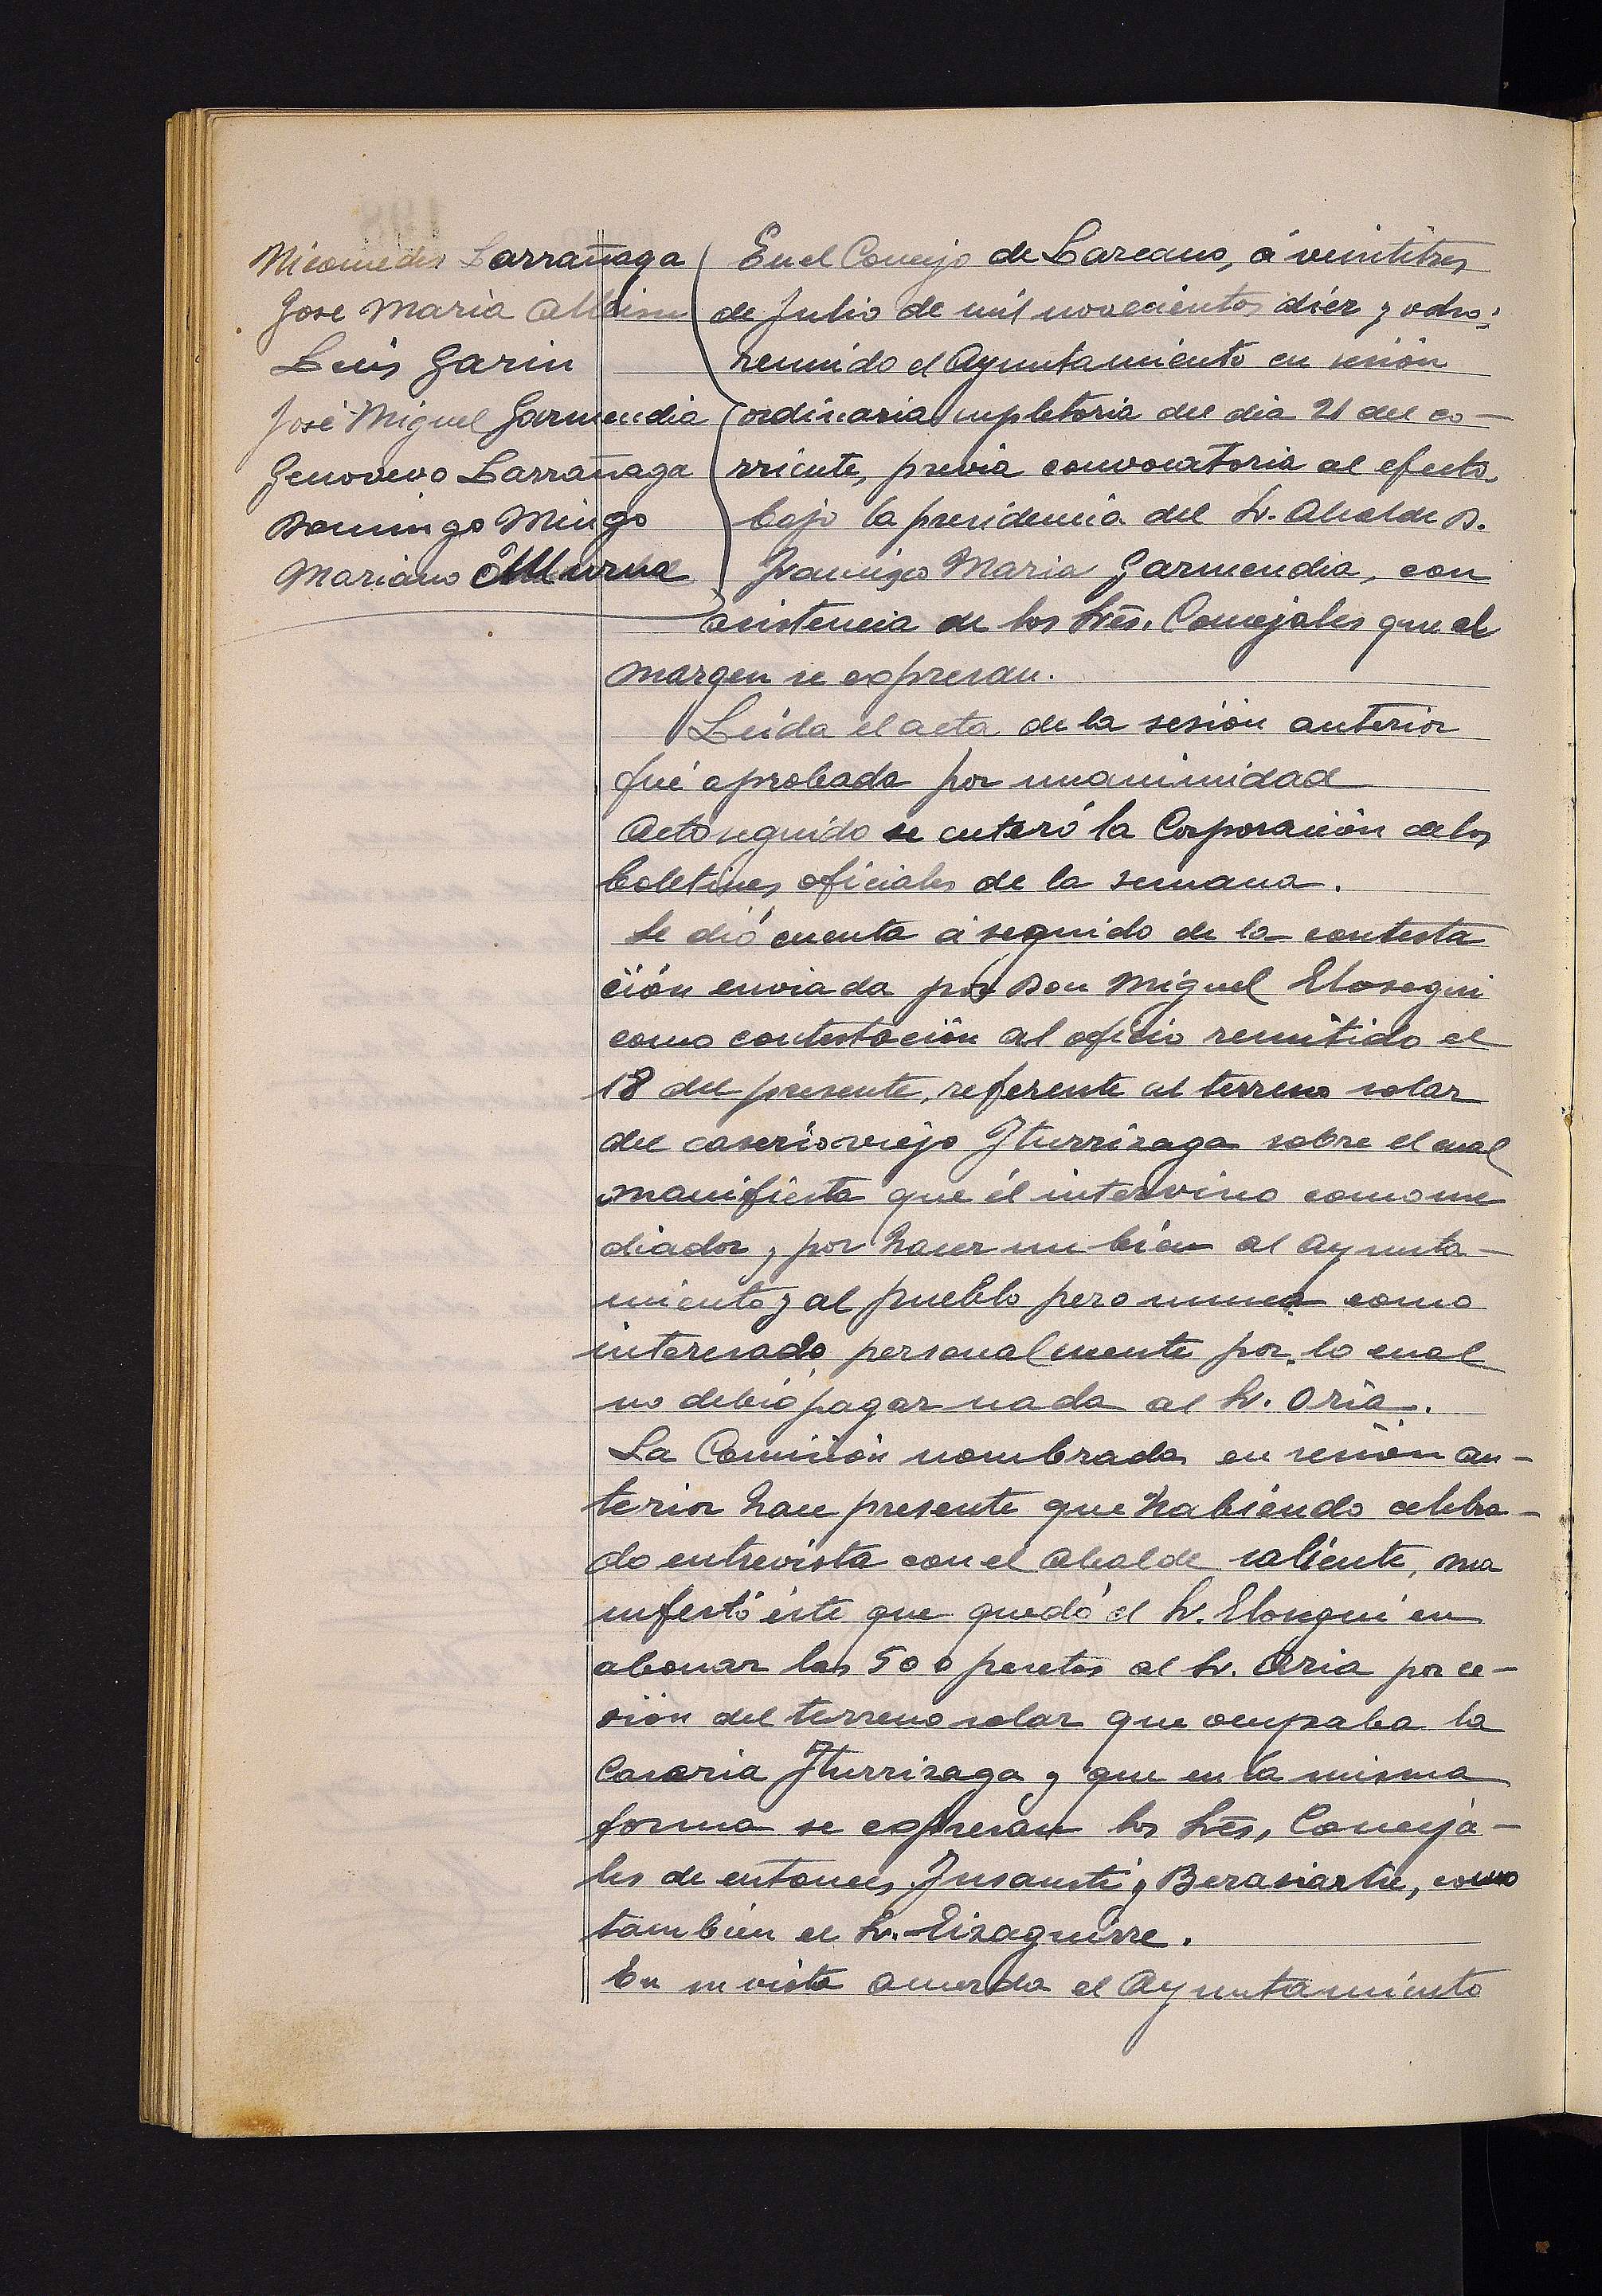 Nicomedes Larrañaga
Jose Maria Albisu
Luis Garin
José Miguel Garmendia
Genovevo Larrañaga
Domingo Mingo
Mariano
En el Concejo de Lazcano, á veintitres
de Julio de mil novecientos diez y ocho;
reunido el Ayuntamiento en sesión
ordinaria supletoria del dia 21 del co-
rriente, previa convocatoria al efecto
bajo la presidencia del Sr. Alcalde D.
Francisco Maria Garmendia, con
asistencia de los Sres. Concejales que al
margen se expresan.
Leida el acta de la sesión anterior
fué aprobada por unanimidad
Acto seguido se enteró la Corporación de los
boletines oficiales de la semana.
Se dió cuenta á seguido de la contesta
ción enviada por Don Miguel Elosegui
como contestación al oficio remitido el
18 del presente, referente al terreno solar
del caserio viejo Iturrizaga sobre el cual
manifiesta que él intervino como me
diador y por hacer un bien al Ayunta-
miento y al pueblo pero nunca como
interesado personalmente por lo cual
no debió pagar nada al Sr. Oria.
La Comisión nombrada en sesión an-
terior hace presente que habiendo celebra-
do entrevista con el Alcalde saliente, ma
nifestó éste que quedó el Sr. Elosegui en
abonar las 500 pesetas al Sr. Oria por ce-
sión del terreno solar que ocupaba la
Caseria Iturrizaga y que en la misma
forma se expresan los Sres, Conceja-
les de entonces Insausti y Berasiartu, como
tambien el Sr. Eizaguirre.
En su vista acuerda el Ayuntamiento